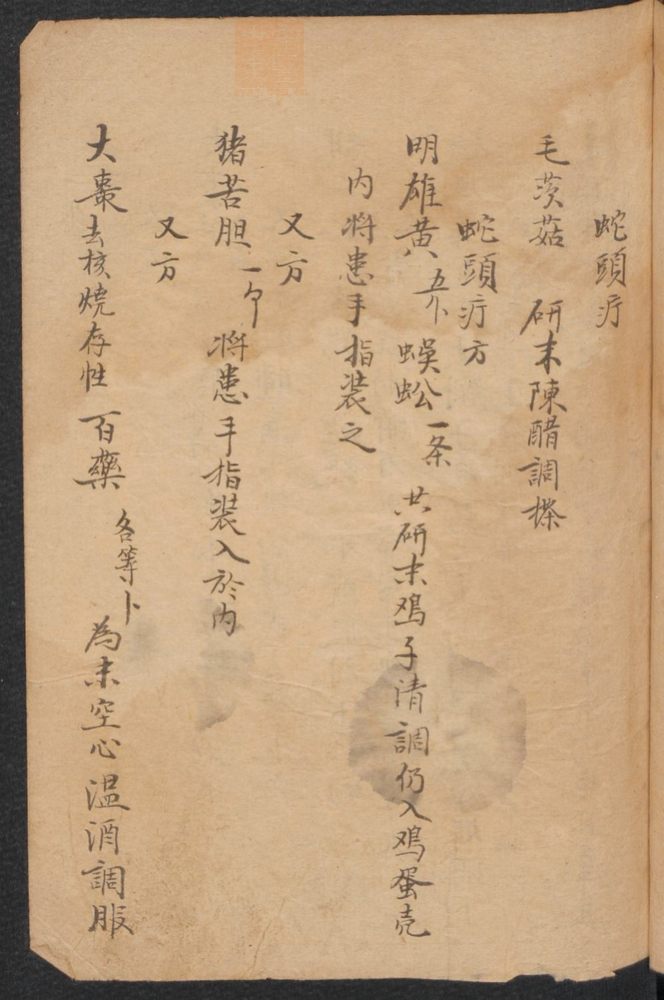 蛇頭疔
毛茨菇 研末陳醋調搽
蛇頭疔方
明雄黄 蜈蚣一条 共研末鸡子清調仍入鸡蛋壳
内将患手指装之
又方
猪苦胆一个 将患手指装入於内
又方
大棗去核燒存性 百藥 各等卜 為末空心温酒調服